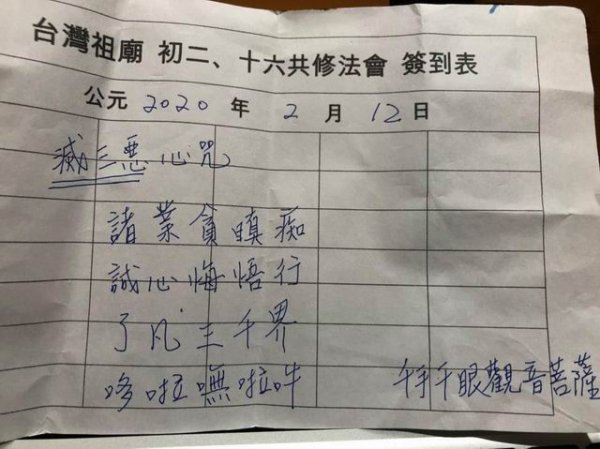 台灣祖廟 初二、十六共修法會 簽到表
公元 2020 年 2 月 12 日
滅三惡心咒
諸業貪瞋痴
誠心悔悟行
了凡三千界
哆啦嘸啦吽
千手千眼觀音菩薩